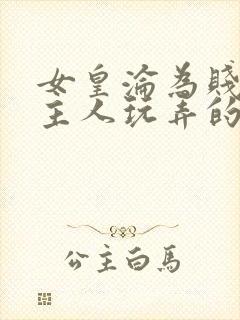 女皇淪為賤
主人玩弄的
公主白馬